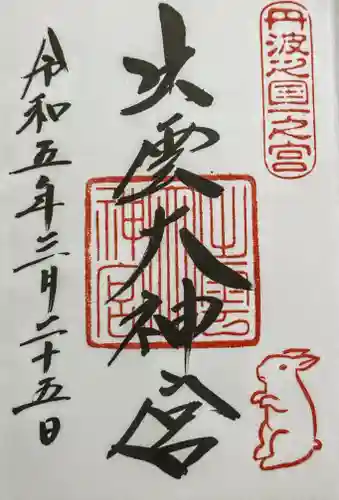 丹波之国一之宮
出雲大神宮
令和五年三月二十五日